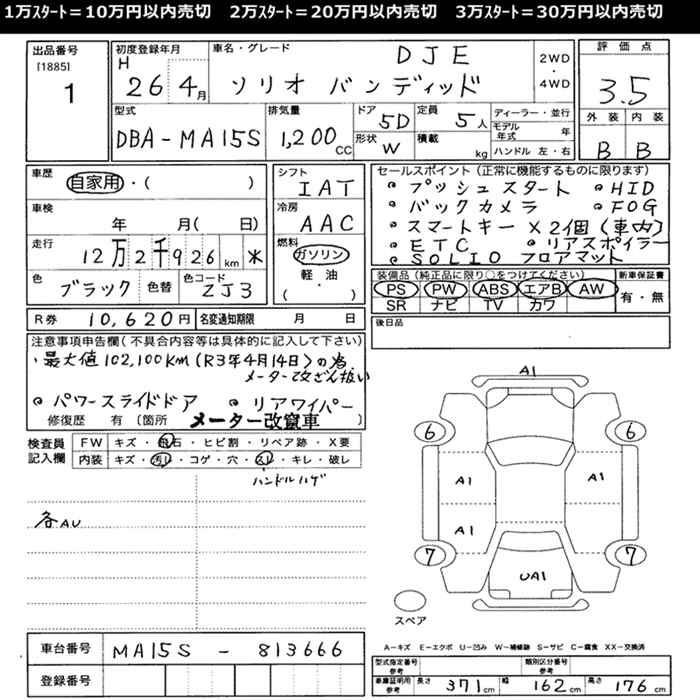 1万スタート＝10万円以内売切　2万スタート＝20万円以内売切　3万スタート＝30万円以内売切
出品番号
[1885]
1
初度登録年月
H
26 4月
車名・グレード
DJE
ソリオ バンディッド
2WD
・
4WD
評価点
3.5
外装 内装
B B
型式
DBA-MA15S
排気量
1,200
CC
ドア
5D
定員
5人
形状
W
積載
kg
ディーラー・並行
モデル年式 年
ハンドル 左・右
車歴
自家用・( )
シフト
IAT
車検
年 月( 日)
冷房
AAC
走行
12万2千926km *
燃料
ガソリン
軽・油
( ・ )
色
ブラック
色替
色コード
ZJ3
セールスポイント（正常に機能するものに限ります）
• プッシュスタート • HID
• バックカメラ • FOG
• スマートキー×2個（車内）
• ETC • リアスポイラー
• SOLIO フロアマット
装備品（純正品に限り○をつけてください）
PS PW ABS エアB AW
SR ナビ TV カワ
新車保証書
有・無
R券 10,620円
名変通知期限 月 日
後日品
注意事項申告欄(不具合内容等は具体的に記入して下さい)
・最大値102,100KM（R3年4月14日）の為
メーター改ざん扱い
• パワースライドドア • リアワイパー
修復歴 有〔箇所 メーター改竄車
検査員
記入欄
FW キズ・飛石・ヒビ割・リペア跡・X要
内装 キズ・汚れ・コゲ・穴・スレ・キレ・破レ
ハンドルハゲ
各AU
A1
6 6
A1 A1
A1
7 7
UA1
スペア
車台番号 MA15S - 813666
登録番号
A－キズ E－エクボ U－凹み W－補修跡 S－サビ C－腐食 XX－交換済
型式指定番号
参考
類別区分番号
参考
車庫証明用
参考
長さ 371cm 幅 162cm 高さ 176cm